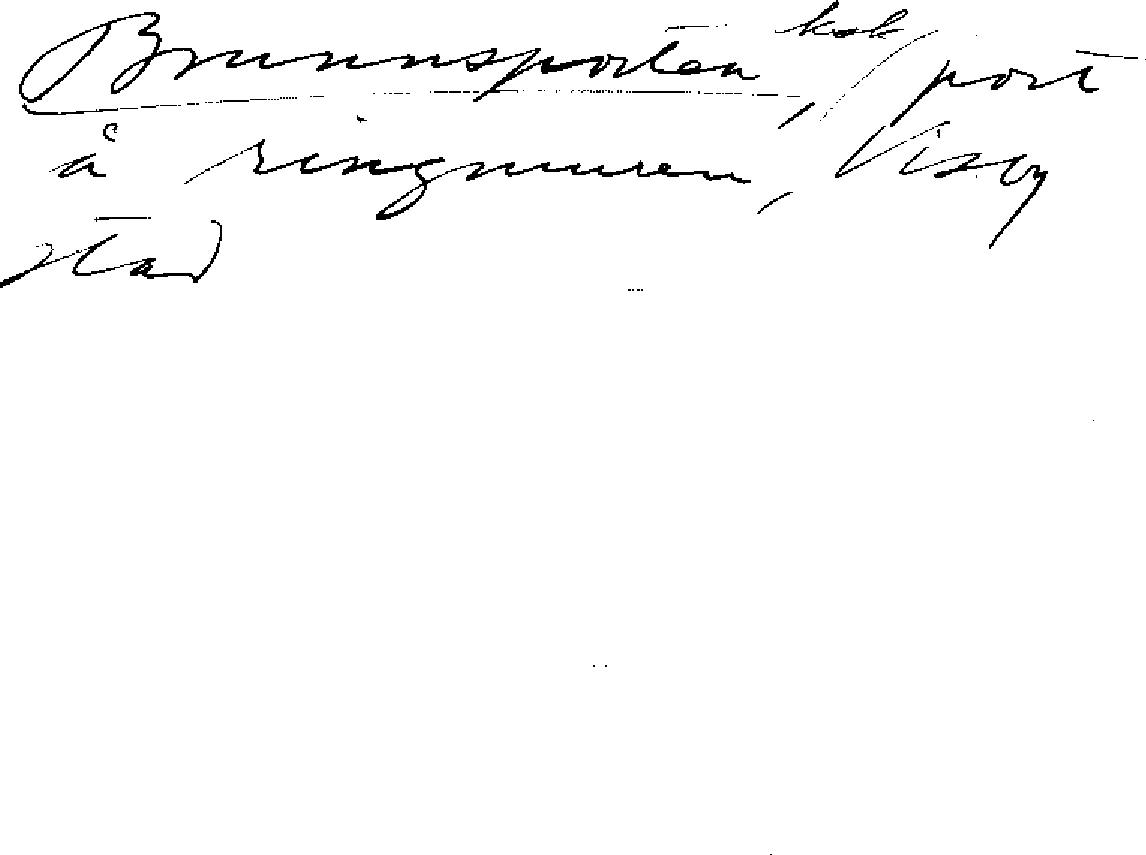 Brunnsporten, port
å ringmuren, Visby
stad